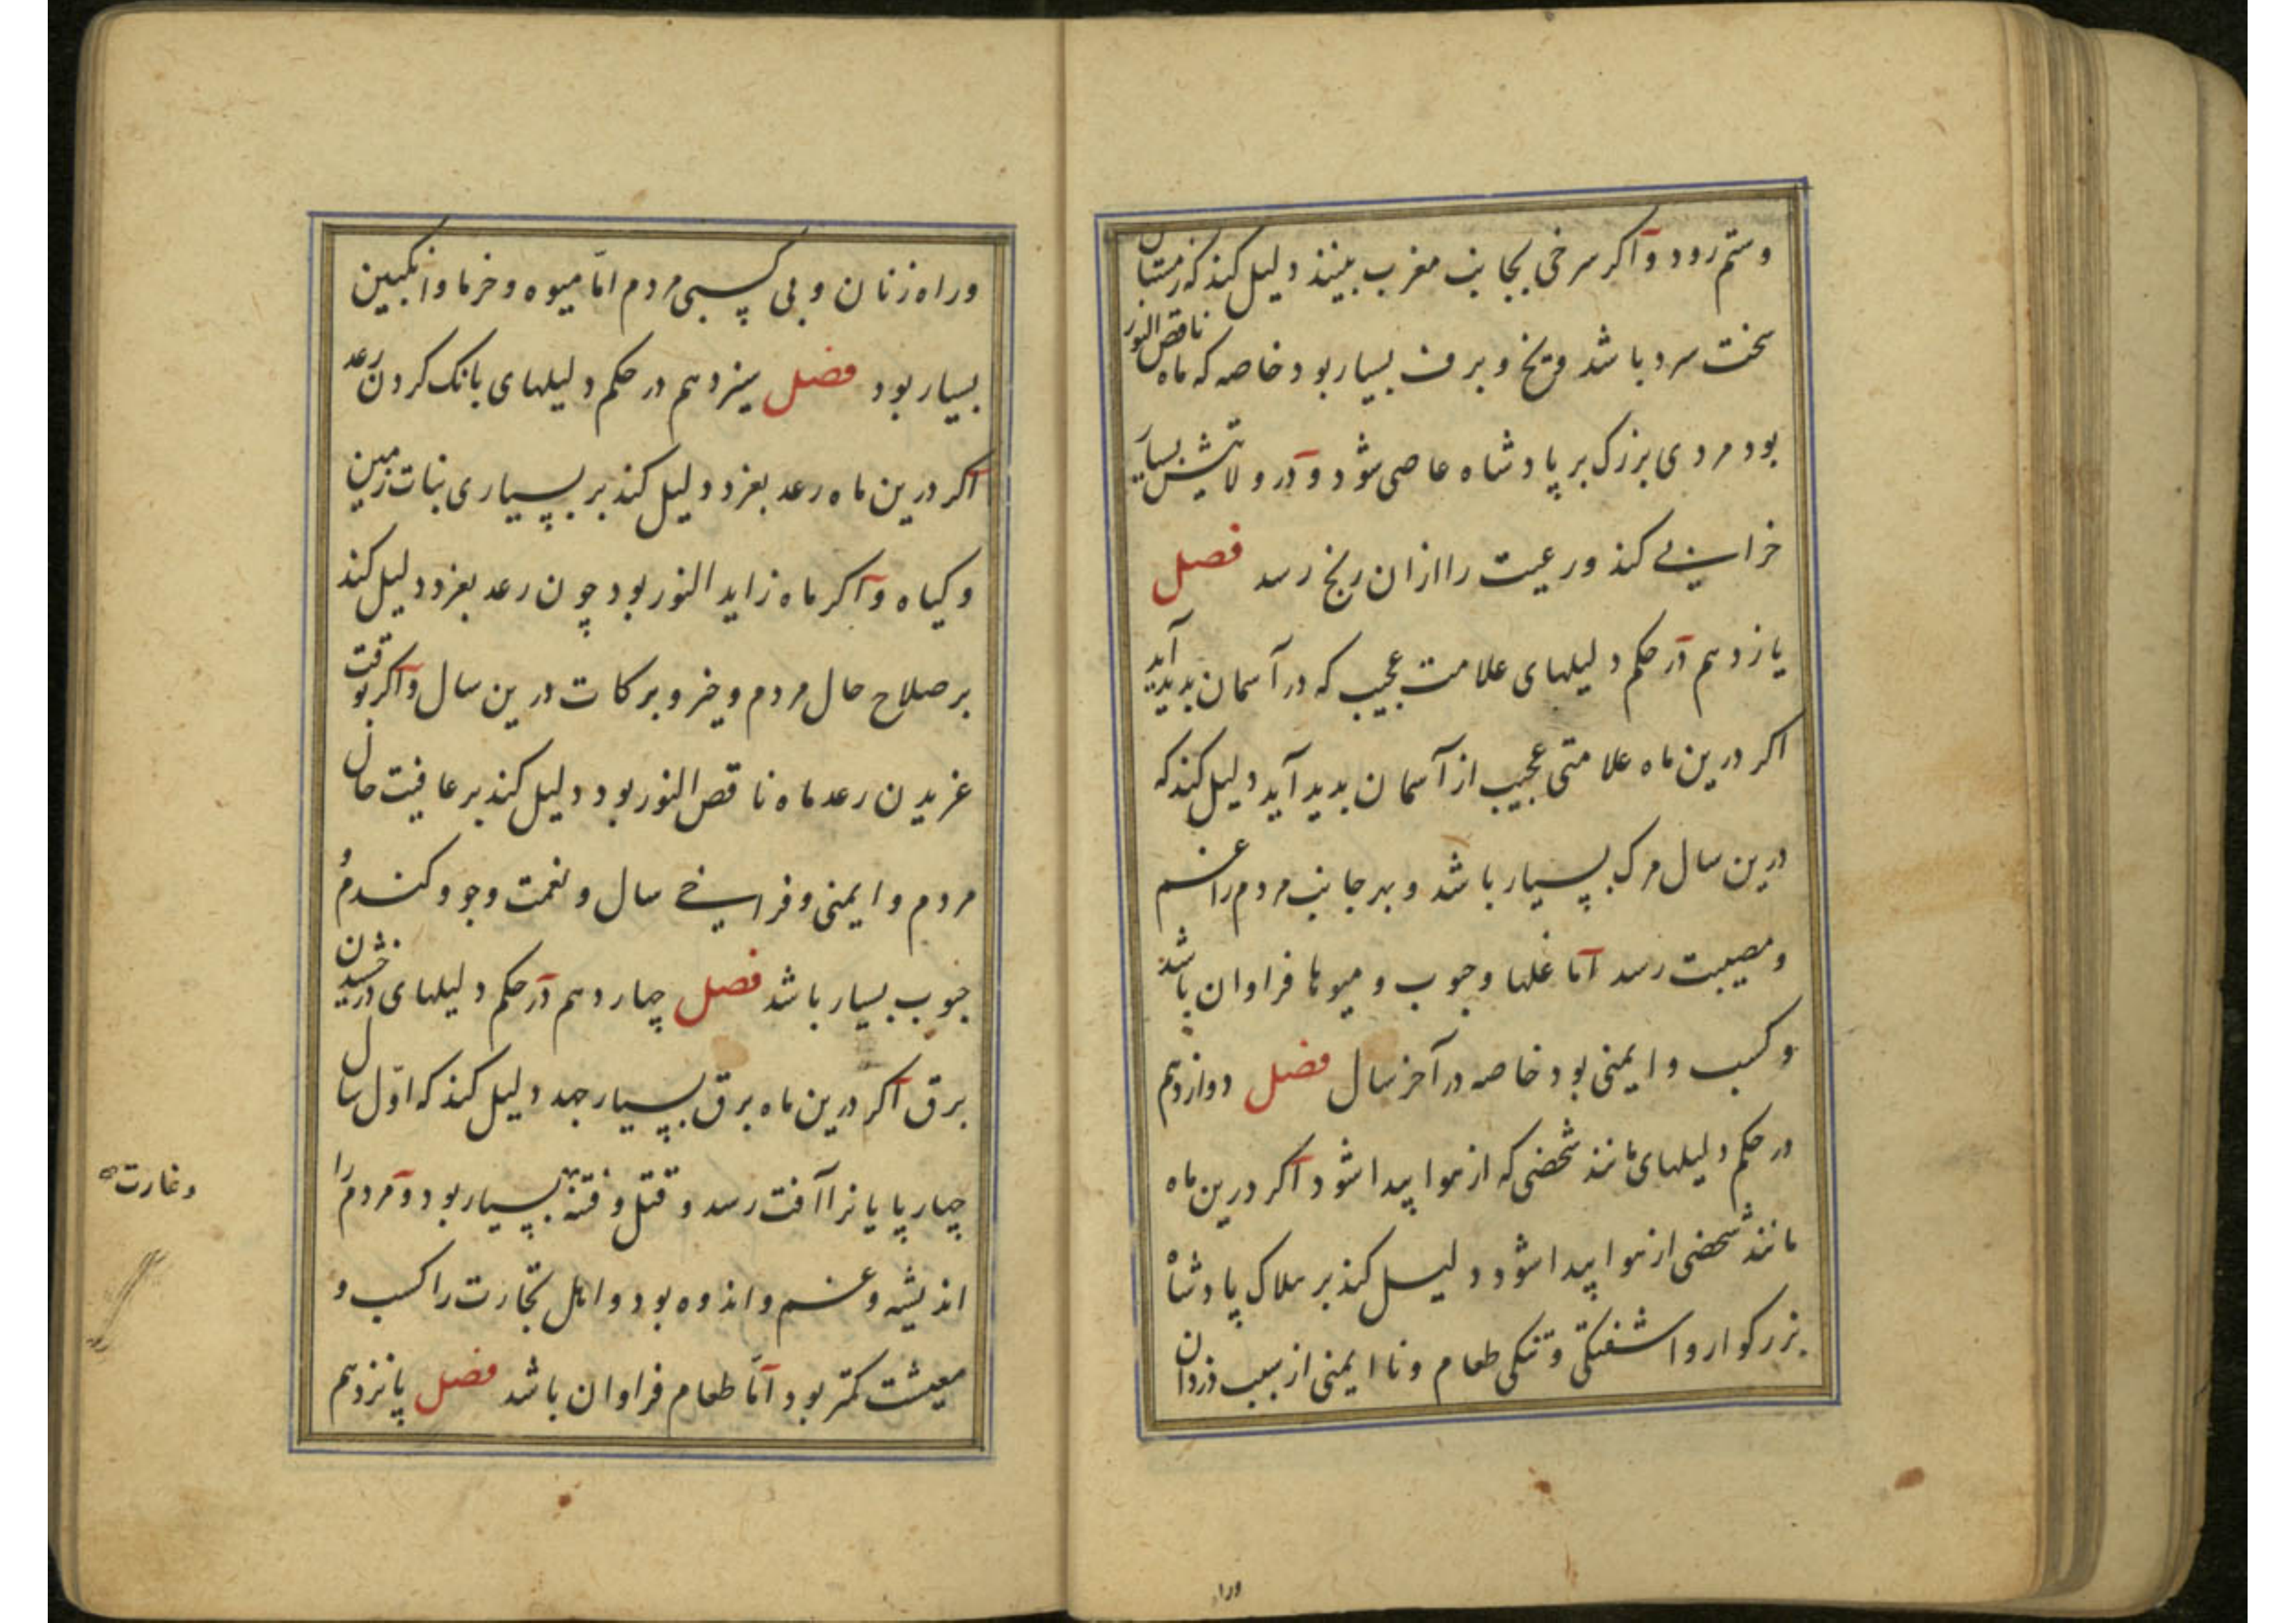 وستم رود و اکر سرخی بجانب مغرب بینند دلیل کند که زمستان
سخت سرد باشد و یخ و برف بسیار بود خاصه که ماه ناقص النور
بود مردی بزرک بر پادشاه عاصی شود و در ولایتش بسیار
خرابی کند و رعیت را ازان رنج رسد فصل
یازدهم در حکم دلیلهای علامت عجیب که در آسمان بدید آید
اکر درین ماه علامتی عجیب از آسمان بدید آید دلیل کند که
درین سال مرک بسیار باشد و بهر جانب مردم را غم
و مصیبت رسد اما غلها و حبوب و میوها فراوان باشد
و کسب و ایمنی بود خاصه در آخر سال فصل دوازدهم
در حکم دلیلهای مانند شخصی که از هوا پیدا شود اکر درین ماه
مانند شخصی از هوا پیدا شود دلیل کند بر هلاک پادشاه
بزرکوار و اشفتکی و تنکی طعام و نا ایمنی از سبب دزدان
ورا
وراه زنان و بی کسبی مردم امّا میوه و خرما و انکبین
بسیار بود فصل سیزدهم در حکم دلیلهای بانک کردن رعد
اکر درین ماه رعد بغرد دلیل کند بر بسیاری نبات زمین
و کیاه و اکر ماه زاید النور بود چون رعد بغرد دلیل کند
بر صلاح حال مردم و خیر و برکات درین سال و اکر بوقت
غریدن رعد ماه ناقص النور بود دلیل کند بر عافیت حال
مردم و ایمنی و فراخی سال و نعمت و جو و کندم و
حبوب بسیار باشد فصل چهاردهم در حکم دلیلهای درخشیدن
برق اکر درین ماه برق بسیار جهد دلیل کند که اوّل سال
چهارپایانرا آفت رسد و قتل و فتنه بسیار بود و مردم را
وغارت
اندیشه و غم و اندوه بود و اهل تجارت را کسب و
معیشت کمتر بود امّا طعام فراوان باشد فصل پانزدهم